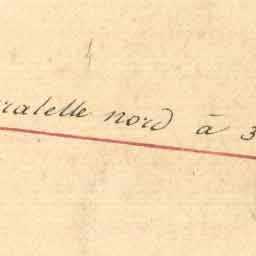 ralelle nord à 3